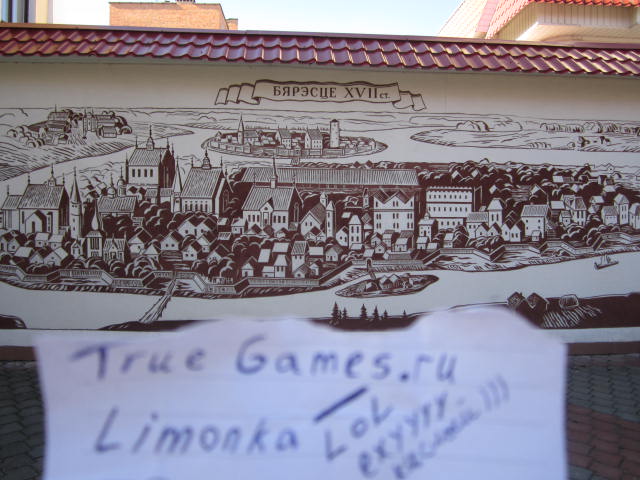 БЯРЭСЦЕ XVII ст.
True Games.ru
Limonka LoL